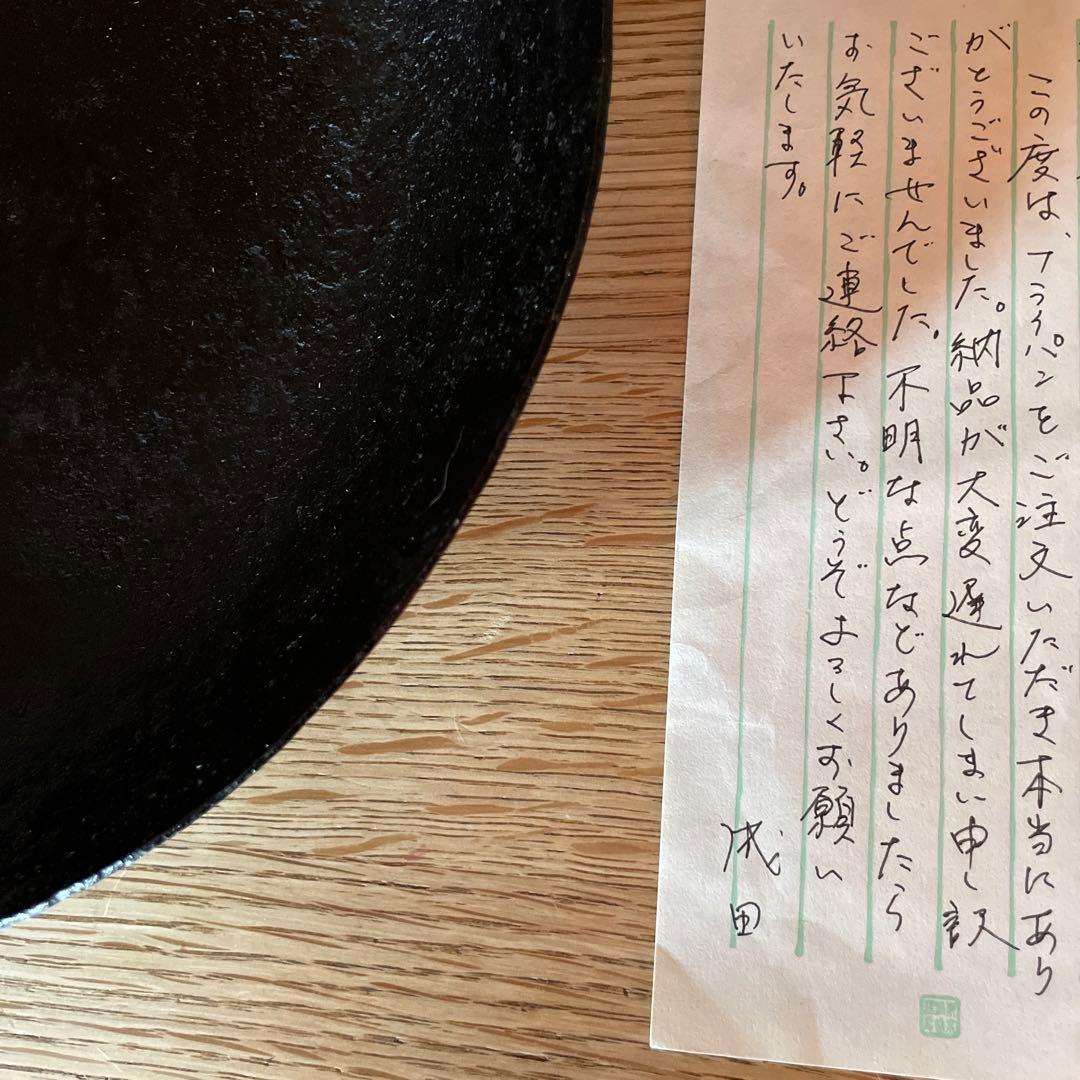 この度は、フライパンをご注文いただき本当にあり
がとうございました。納品が大変遅れてしまい申し訳
ございませんでした。不明な点などありましたら
お気軽にご連絡下さい。どうぞよろしくお願い
いたします。
成田